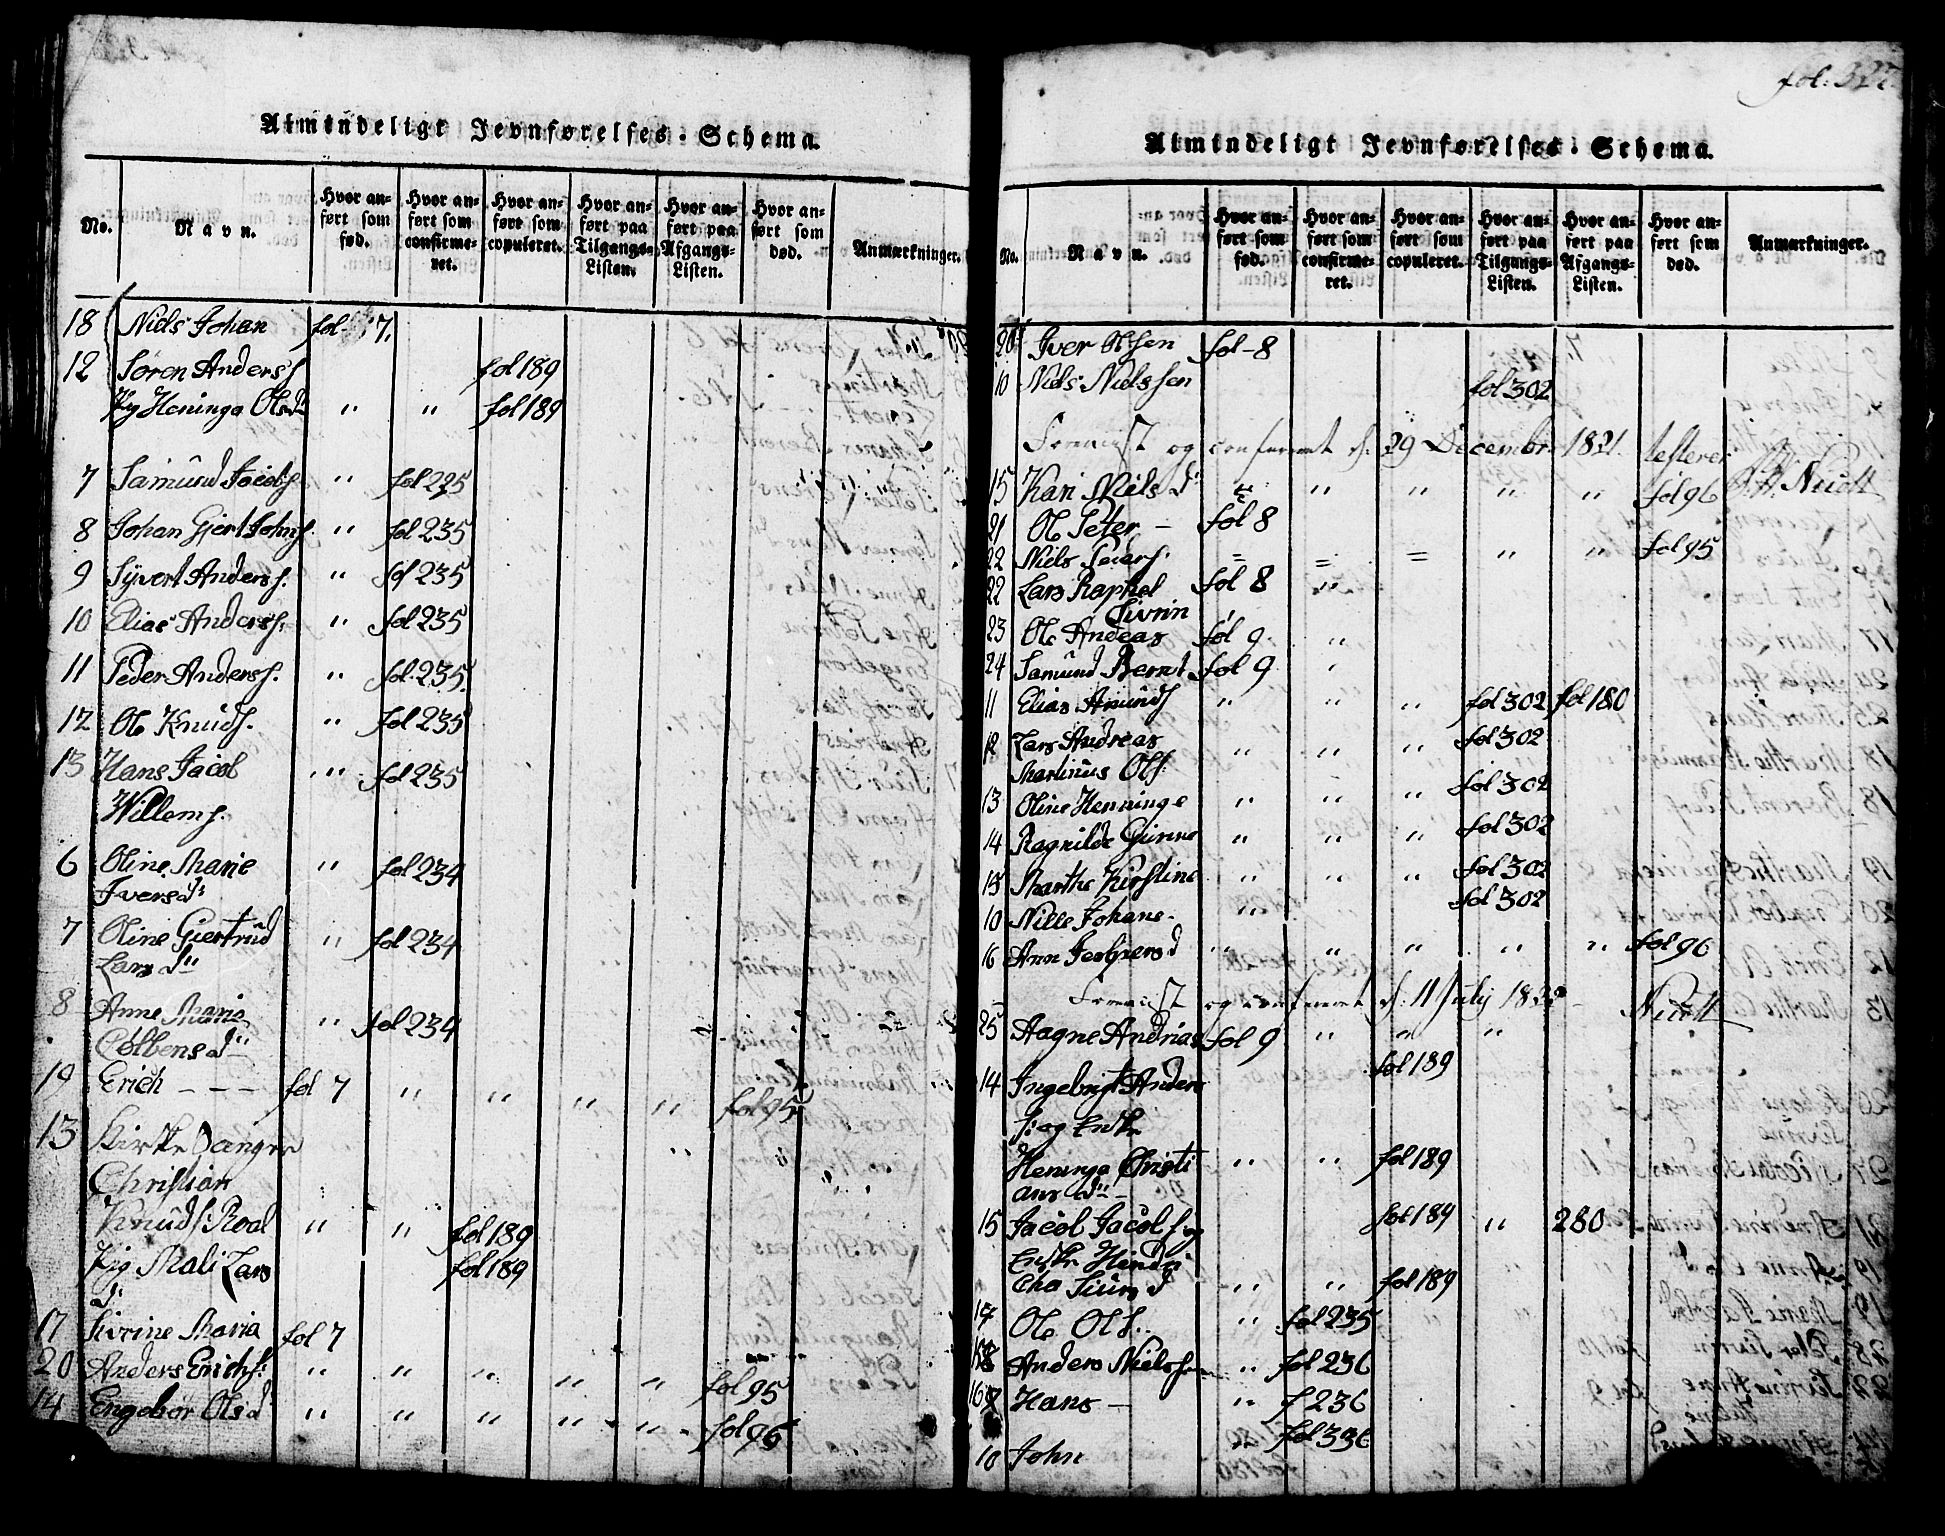 Almindeligt Jevnførelses-Schema.
No. Navn. Hvor anført som fød. Hvor anført som confirmeret. Hvor anført som copuleret. Hvor anført paa Tilgangs-Listen. Hvor anført paa Afgangs-Listen. Hvor anført som død. Anmærkninger.
18 Niels Johan fol 17.
12 Søren Anders. fol 189
Pig Heninga Olsd. " " fol 189
7 Samund Jacobs. " fol 225
8 Johan Gjert Johns. " fol 235
9 Syvert Anders. " fol 235
10 Elias Anders. " fol 235
11 Peder Anders. " fol. 235.
12 Ole Knuds. " fol 235
13 Hans Jacob " fol 235
Willems.
6 Oline Marie " fol 234
Iversd:
7 Oline Giertrud " fol 234
Lars d"
8 Anne Maria " fol 234
d"
19 Erich - - - fol 7 " " " " fol 95
13 "
Christian
Knuds: Roal " " fol 189
Pig Mali Lars fol 189
d:
17 Sivrine Maria fol 7
20 Anders Erichs: " " " " " fol 95
14 Engebor Olsd " " " " " fol 96
fol: 327
Almindeligt Jevnførelses-Schema.
No. Navn. Hvor anført som fød. Hvor anført som confirmeret. Hvor anført som copuleret. Hvor anført paa Tilgangs-Listen. Hvor anført paa Afgangs-Listen. Hvor anført som død. Anmærkninger.
20 Iver Olsen fol - 8
10 Niels Nielssen fol 302
og d. 29 Decembr. 1821. testerer
15 Kari Niels d: " " " " " fol 96
21 Ole Peter - fol 8
22 Niels = = = " " fol 95
22 Lars Raphel fol 8 "
Sivrin
23 Ole Andeas fol 9 "
24 Samund Bernt fol 9 "
11 Elias Amunds " " " fol 302 fol 180
12 Lars Andreas " " " fol 302
Martinus Ols:
13 Oline Henninge " " " fol 302
14 Ragnilde Gunne " " " fol 302
15 Marthe Kirstine " " " fol 302
10 Nille Johane " fol 302
16 Ann Jesperd " " " " " fol 96
og d. 11 July 182
25 Aagne Andrias fol 9 " " "
14 Ingebrigt Anders fol 189
s: og Enke
Heninga Christi " " fol 189
ans d"
15 Jacob Jacobs og fol 189 " 280
Enke Hendri
cha d " " fol 189
17 Ole Ols. " fol 235
18 Anders Nielssen " fol 236
Hans - " f 236
10 John " fol 336